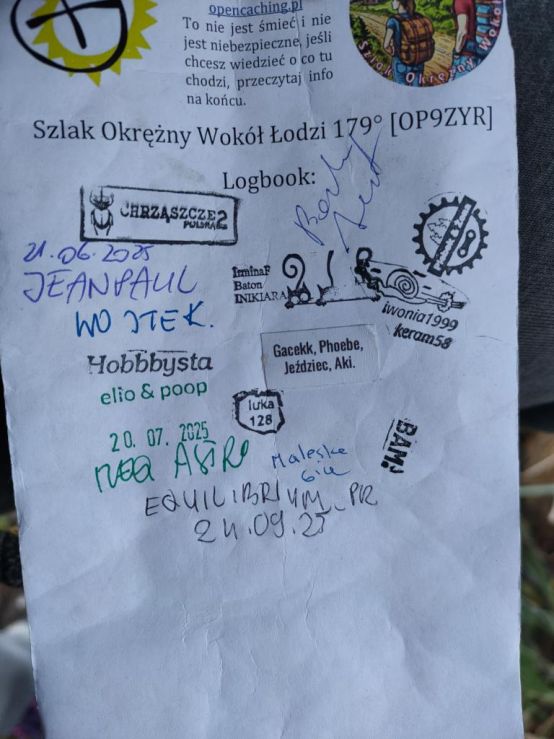 opencaching.pl
To nie jest śmieć i nie
jest niebezpieczne, jeśli
chcesz wiedzieć o co tu
chodzi, przeczytaj info
na końcu.
Szlak Okrężny Wokół
Szlak Okrężny Wokół Łodzi 179° [OP9ZYR]
Logbook:
CHRZĄSZCZE2
POLSKA
21.06.2025
JEANPAUL
IrminaF
Baton
INIKIARA
iwonia1999
keram58
WOJTEK.
Hobbbysta
Gacekk, Phoebe,
Jeździec, Aki.
elio & poop
luka
128
20. 07. 2025
BAM!
EQUILIBRIUM_PR
24.09.25